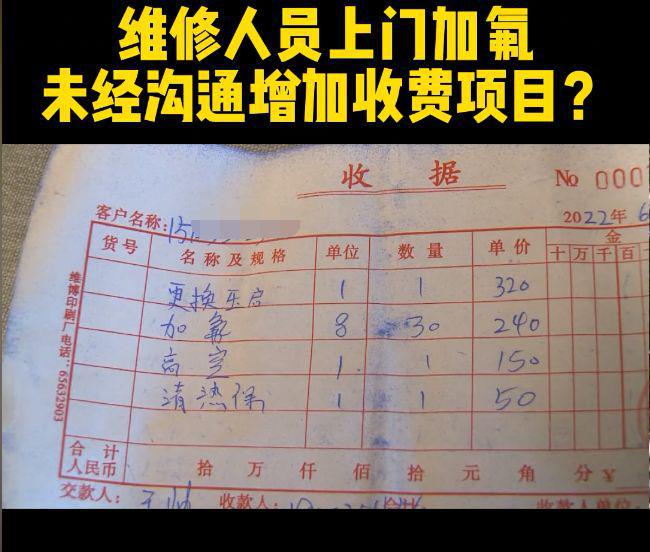 维修人员上门加氟
未经沟通增加收费项目？
收 据
No 000
客户名称：15
2022年6
货号 名称及规格 单位 数量 单价 金
十 万 千 百
更换压启 1 1 320
加氟 8 30 240
高空 1 1 150
清洗保 1 1 50
合计
人民币 拾 万 仟 佰 拾 元 角 分 ¥
交款人：王帅 收款人： 会计： 收款单位
维博印刷厂 电话：65632903